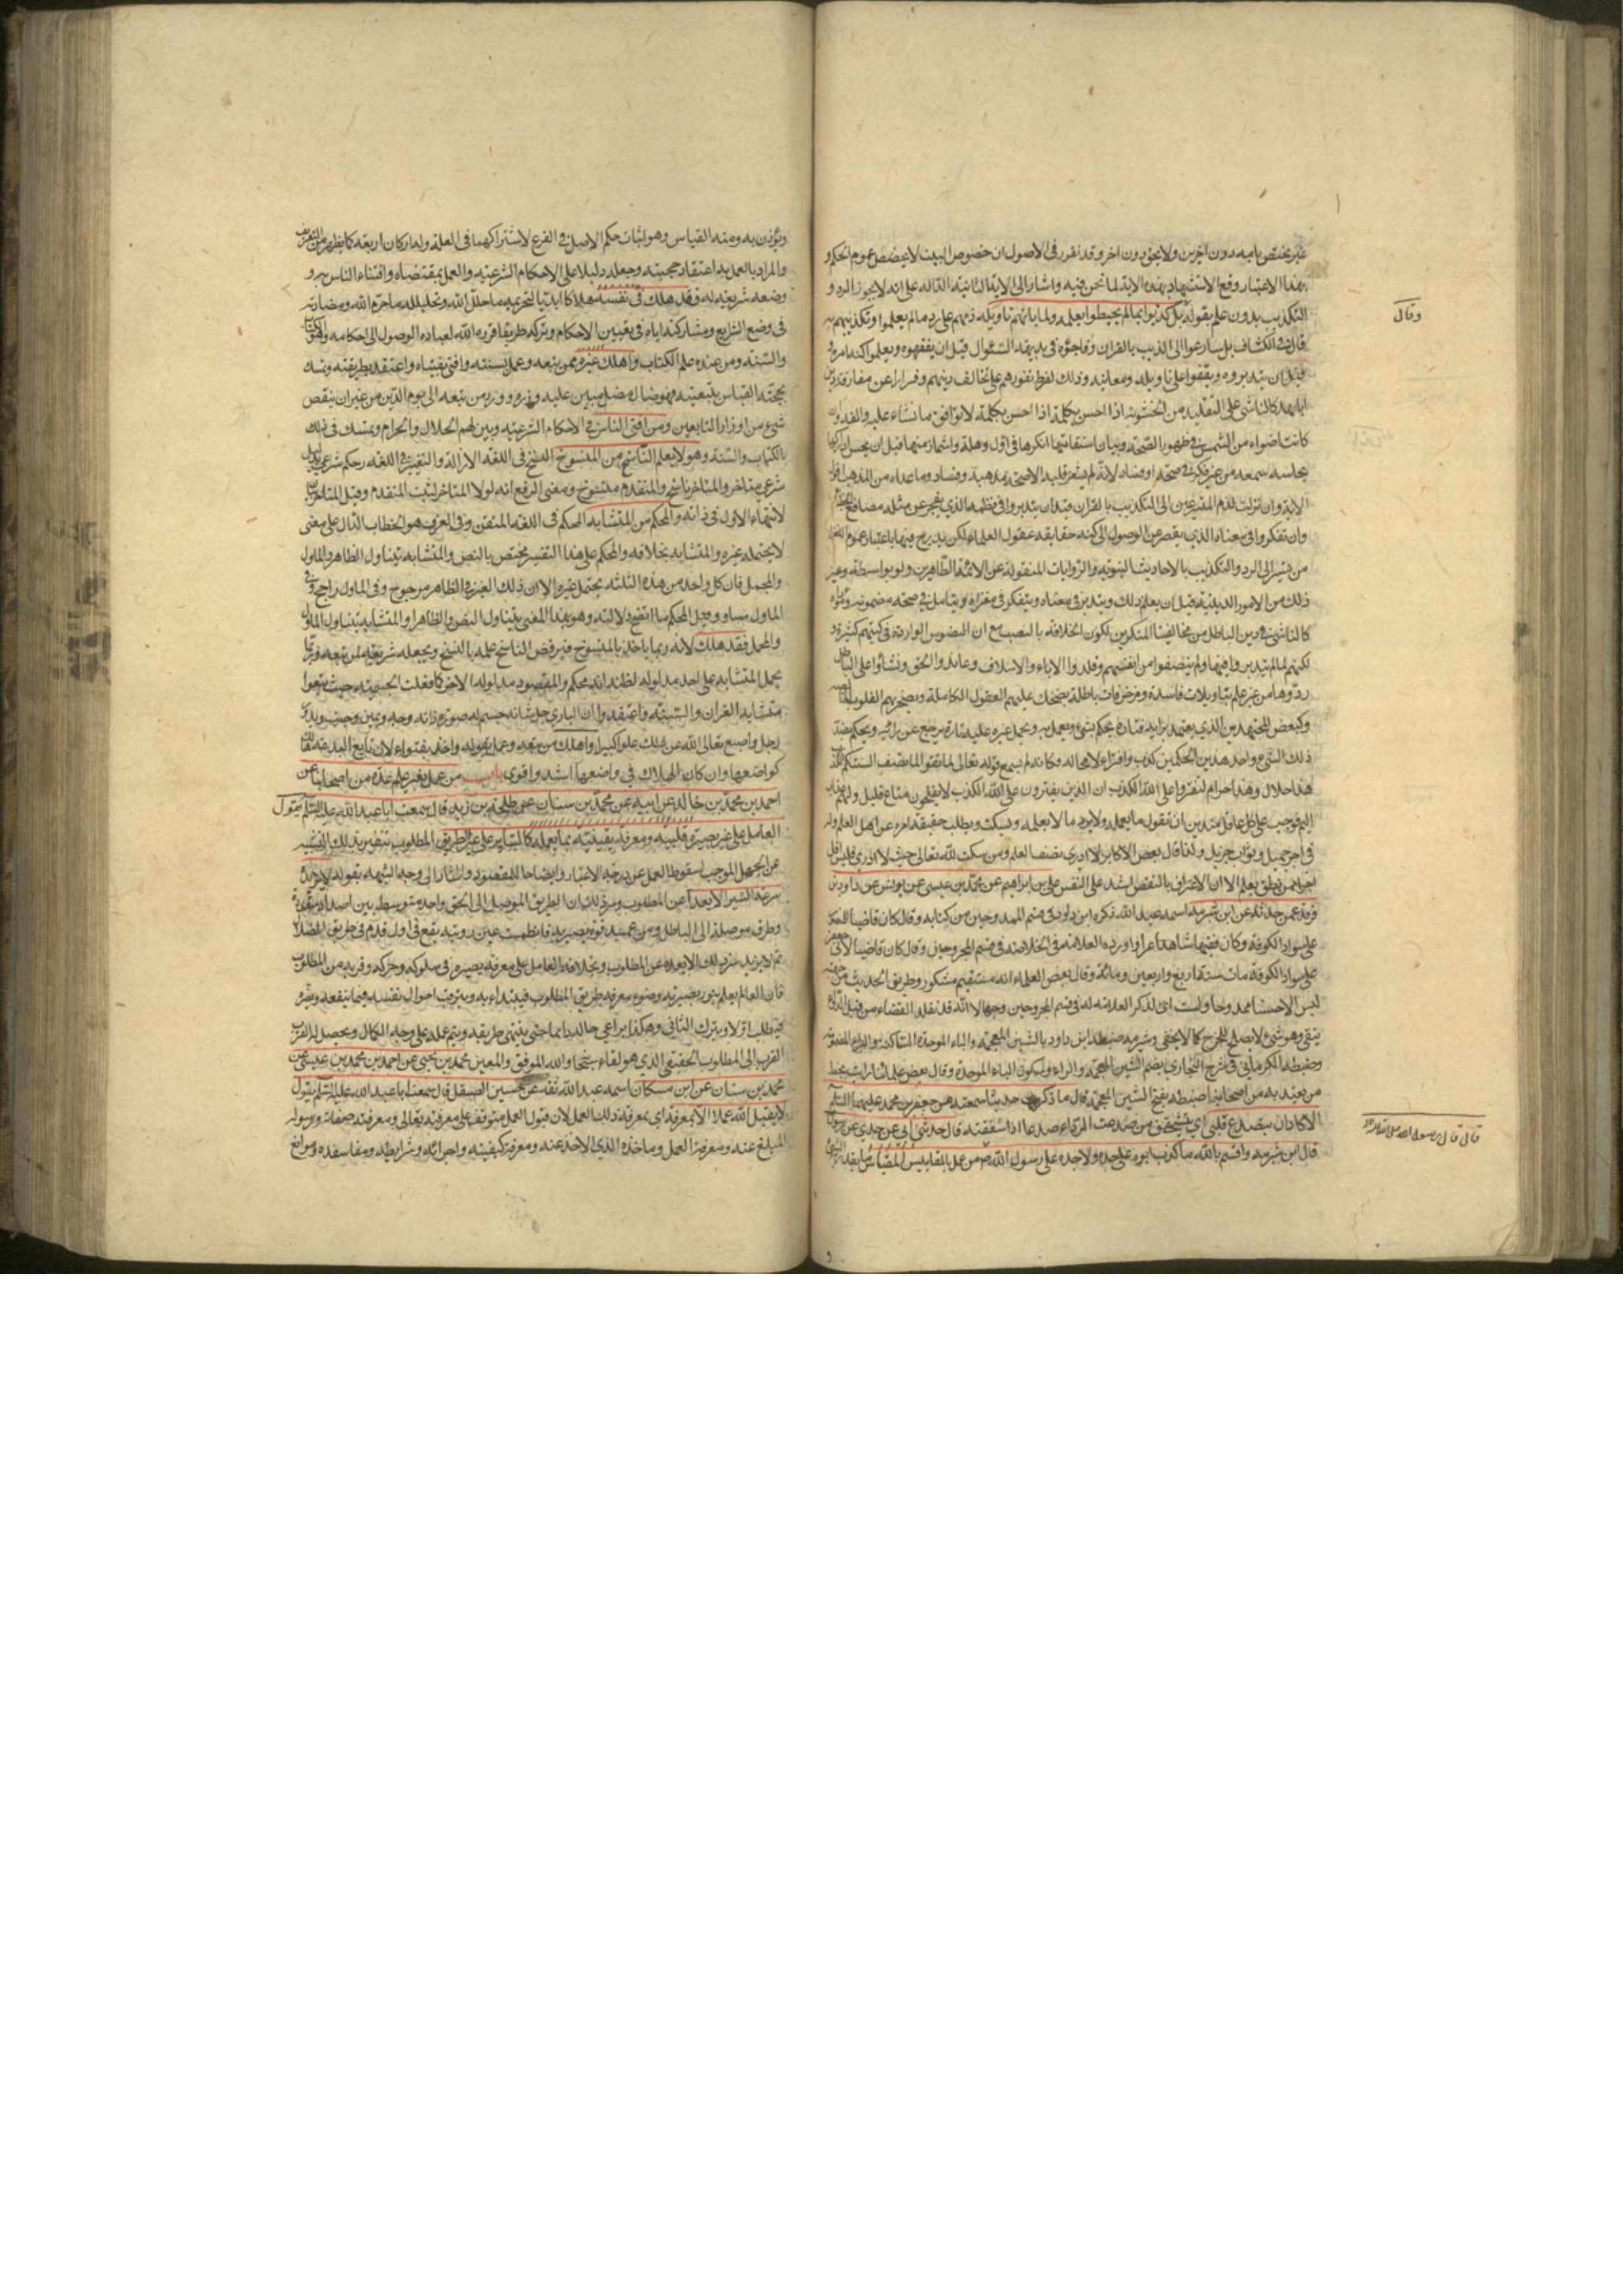 غير مختص بامة دون اخرين ولا بحق دون اخر وقد تقرر فى الاصول ان خصوص السبب لا يخصص عموم الحكم و
بهذا الاعتبار وقع الاستشهاد بهذه الاية لما نحن فيه واشار الى الاية الثانية الدالة على انه لا يجوز الرد و
التكذيب بدون علم بقوله بل كذبوا بما لم يحيطوا بعلمه ولما ياتهم تاويله ذمهم على رد ما لم يعلموا وتكذيبهم به
وقال
قال فى الكشاف بل سارعوا الى التكذيب بالقران وفاجؤه فى بديهة السؤال قبل ان يفقهوه ويعلموا كنه امره و
قبل ان يتدبروه ويقفوا على تاويله ومعانيه وذلك لفرط نفورهم على مخالف دينهم وفرارا عن مفارقة دين
ابائهم كالناشى على التقليد من الحشوية اذا احس بكلمة لا توافق ما نشاء عليه والفه وان
كانت اضوء من الشمس فى ظهور الصحة وبيان استقامتها انكرها فى اول وهلة واشماز منها قبل ان يحس ادراكها
بحاسة سمعه من غير فكر فى صحة او فساد لانه لم يشعر قلبه الا صحة مذهبه وفساد ما عداه من المذاهب اقول
الاية وان نزلت لذم المتسرعين الى التكذيب بالقران قبل ان يتدبروا فى نظمه الذى يعجز عن مثله مصاقع
وان تفكروا فى معناه الذى يقصر عن الوصول الى كنه حقايقه عقول العلماء لكن يندرج فيها باعتبار عموم
من يتسرع الى الرد والتكذيب بالاحاديث النبوية والروايات المنقولة عن الائمة الطاهرين ولو بواسطة وغير
ذلك من الامور الدينية قبل ان يعلم ذلك ويتدبر فى معناه ويتفكر فى مغزاه ويتامل فى صحة مضمونه
كالناشى فى دين الباطل من مخالفينا المنكرين لكون الخلافة بالنص مع ان النصوص الواردة فى كتبهم كثيرة
لكنهم لما لم يتدبروا فيها ولم ينصفوا من انفسهم وقلدوا الاباء والاسلاف وعاندوا الحق ونشاؤا على الباطل
ردوها من غير علم بتاويلات فاسدة ومزخرفات باطلة يضحك عليهم العقول الكاملة
وكبعض المجتهدين الذى يعتمد برايه فتارة يحكم بشىء ويعمل به ويحمل غيره عليه وتارة يرجع عن رائه ويحكم بضد
ذلك الشىء واحد هذين الحكمين كذب وافتراء لا محالة وكانه لم يسمع قوله تعالى لا تقولوا لما تصف السنتكم الكذب
هذا حلال وهذا حرام لتفتروا على الله الكذب ان الذين يفترون على الله الكذب لا يفلحون متاع قليل ولهم عذاب
اليم فوجب على كل عاقل متدين ان يقول ما يعلمه ولا يرد ما لا يعلمه ويسكت ويطلب حقيقة امره عن اهل العلم وله
فى اجر جميل وثواب جزيل ولذا قال بعض الاكابر لا ادرى نصف العلم ومن سكت لله تعالى حيث لا ادرى فليس اقل
اجرا ممن نطق بعلم الا ان الاعتراف بالنقص اشد على النفس على بن ابراهيم عن محمد بن عيسى عن يونس عن داود بن
فرقد عمن حدثه عن ابن شبرمة اسمه عبد الله ذكره ابن داود فى قسم الممدوحين من كتابه وقال كان قاضيا
على سواد الكوفة وكان فقيها شاعرا واورده العلامة فى الخلاصة فى قسم المجروحين وقال كان قاضيا لابى جعفر
على سواد الكوفة مات سنة اربع واربعين ومائة وقال بعض العلماء انه مستقيم مشكور وطريق الحديث من جهته
ليس الا حسنا ممدوحا ولست ارى لذكر العلامة له فى قسم المجروحين وجها الا انه قد تقلد القضاء من قبل
وهو شىء لا يصلح للجرح كما لا يخفى وشبرمة ضبطه ابن داود بالشين المعجمة والباء الموحدة الساكنة والراء المضمومة
وضبطه الكرمانى فى شرح البخارى بضم الشين المعجمة والراء وسكون الباء الموحدة وقال بعض علمائنا رايت بخط
من يعتد به من اصحابنا ضبطه بفتح الشين المعجمة قال ما ذكرت حديثا سمعته من جعفر بن محمد عليهما السلام
الا كاد ان يتصدع قلبى اى ينشق من صدعت الرداء صدعا اذا شققته قال حدثنى ابى عن جدى عن رسول الله
قال قال رسول الله صلى الله عليه واله
قال ابن شبرمة واقسم بالله ما كذب ابوه على جده ولا جده على رسول الله ص من عمل بالمقاييس المقياس ما يقدر به الشىء
ويوزن به ومنه القياس وهو اثبات حكم الاصل فى الفرع لاشتراكهما فى العلة وله اركان اربعة كما يظهر من التعريف
والمراد بالعمل به اعتقاد حجيته وجعله دليلا على الاحكام الشرعية والعمل بمقتضاه وافتاء الناس به و
وضعه شريعة له فقد هلك فى نفسه هلاكا ابديا لتحريمه ما حلل الله وتحليله ما حرم الله ومضادته
فى وضع الشرايع ومشاركته اياه فى تعيين الاحكام وتركه طريقا قرره الله لعباده الوصول الى احكامه وهو الكتاب
والسنة ومن عنده علم الكتاب واهلك غيره ممن يتبعه وعمل بسنته وافتى بفتياه واعتقد بطريقته وتمسك
بحجته القياس بتبعيته فهو ضال مضل مبين عليه وزره ووزر من تبعه الى يوم الدين من غير ان ينقص
شىء من اوزار التابعين ومن افتى الناس فى الاحكام الشرعية وبين لهم الحلال والحرام وتمسك فى ذلك
بالكتاب والسنة وهو لا يعلم الناسخ من المنسوخ النسخ فى اللغة الازالة والتغيير فى اللغة رفع حكم شرعى بدليل
شرعى متاخر والمتاخر ناسخ والمتقدم منسوخ ومعنى الرفع انه لولا المتاخر لثبت المتقدم وقيل المتاخر بيان
لانتهاء الاول فى ذاته والمحكم من المتشابه المحكم فى اللغة المتقن وفى العرف هو الخطاب الدال على معنى
لا يحتمل غيره والمتشابه بخلافه والمحكم على هذا التفسير مختص بالنص والمتشابه يتناول الظاهر والماول
والمجمل فان كل واحد من هذه الثلثة يحتمل غيره الا ان ذلك الغير فى الظاهر مرجوح وفى الماول راجح وفى
الماول مساو وقيل المحكم ما اتضح دلالته وهو بهذا المعنى يتناول النص والظاهر والمتشابه يتناول الماول
والمجمل فقد هلك لانه ربما ياخذ بالمنسوخ فيرفض الناسخ عمله بالنسخ ويجعله شريعة لمن تبعه وربما
يحمل المتشابه على احد مدلوله لظنه انه محكم والمقصود مدلوله الاخر كما فعلت المجسمة حيث تبعوا
متشابه القران والسنة واعتقدوا ان البارى جل شانه جسم له صورة ذات وجه ويمين وجنب ويد و
رجل واصبع تعالى الله عن ذلك علوا كبيرا واهلك من تبعه وعمل بقوله واخذ بفتواه لان تابع البدعة هالك
كواضعها وان كان الهلاك فى واضعها اشد واقوى باب من عمل بغير علم عدة من اصحابنا عن
احمد بن محمد بن خالد عن ابيه عن محمد بن سنان عن طلحة بن زيد قال سمعت ابا عبد الله عليه السلم يقول
العامل على غير بصيرة قلبية ومعرفة يقينية بما يعمله كالساير على غير الطريق المطلوب
عن الجهل الموجب لسقوط العمل عن درجة الاعتبار وايضاحا للمقصود واشار الى وجه الشبه بقوله لا يزيده
سرعة السير الا بعدا عن المطلوب وسر ذلك ان الطريق الموصل الى الحق واحد متوسط بين اضداد
وطرق موصلة الى الباطل ومن عميت قوة بصيرته وانطمست عين رويته يقع فى اول قدم فى طريق الضلالة
ثم لا يزيد سيره ذلك الا بعده عن المطلوب وبخلافه العامل على معرفة يصيره فى سلوكه وحركته وقربه من المطلوب
فان العالم يعلم بنور بصيرته وضوء معرفته طريق المطلوب فيبتداء به ويترقب احوال نفسه فيما ينفعه ويضره
فيطلب الاول ويترك الثانى وهكذا يراعى حاله دايما حتى ينتهى طريقه ويتم عمله على وجه الكمال ويحصل له القرب
القرب الى المطلوب الحقيقى الذى هو لقاء الله والله الموفق والمعين محمد بن يحيى عن احمد بن محمد بن عيسى عن
محمد بن سنان عن ابن مسكان اسمه عبد الله ثقة عن حسين الصيقل قال سمعت ابا عبد الله عليه السلم يقول
لا يقبل الله عملا الا بمعرفة اى بمعرفة ذلك العمل لان قبول العمل متوقف على معرفته تعالى ومعرفة صفاته ورسوله
المبلغ عنه ومعرفة العمل وماخذه الذى الاخذ عنه ومعرفة كيفيته واجزائه وشرايطه ومفاسده وموانع